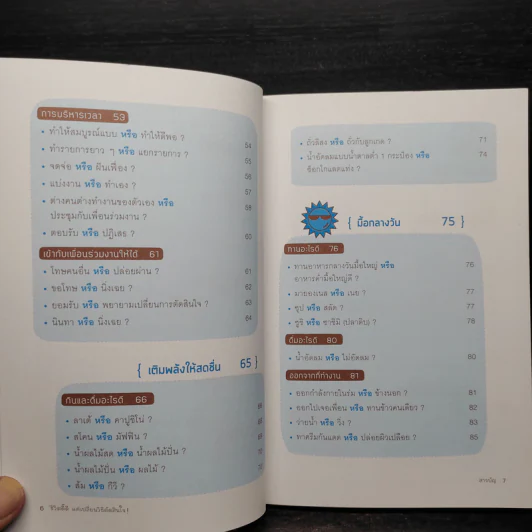 การบริหารเวลา 53
• ทำให้สมบูรณ์แบบ หรือ ทำให้ดีพอ ? 54
• ทำรายการยาว ๆ หรือ แยกรายการ ? 55
• จดจ่อ หรือ ฝันเฟื่อง ? 56
• แบ่งงาน หรือ ทำเอง ? 57
• ต่างคนต่างทำงานของตัวเอง หรือ 58
ประชุมกับเพื่อนร่วมงาน ?
• ตอบรับ หรือ ปฏิเสธ ? 60
เข้ากับเพื่อนร่วมงานให้ได้ 61
• โทษคนอื่น หรือ ปล่อยผ่าน ? 61
• ขอโทษ หรือ นิ่งเฉย ? 62
• ยอมรับ หรือ พยายามเปลี่ยนการตัดสินใจ ? 63
• นินทา หรือ นิ่งเฉย ? 64
{ เติมพลังให้สดชื่น 65 }
กินและดื่มอะไรดี 66
• ลาเต้ หรือ คาปูชิโน่ ?
• สโคน หรือ มัฟฟิน ?
• น้ำผลไม้สด หรือ น้ำผลไม้ปั่น ?
• น้ำผลไม้ปั่น หรือ ผลไม้ ?
• ส้ม หรือ กีวี ?
6 ชีวิตดี๊ดี แค่เปลี่ยนวิธีตัดสินใจ !
• ถั่วลิสง หรือ ถั่วกับลูกเกด ? 71
• น้ำอัดลมแบบน้ำตาลต่ำ 1 กระป๋อง หรือ 74
ช็อกโกแลตแท่ง ?
{ มื้อกลางวัน 75 }
ทานอะไรดี 76
• ทานอาหารกลางวันมื้อใหญ่ หรือ 76
อาหารค่ำมื้อใหญ่ดี ?
• มายองเนส หรือ เนย ? 77
• ซุป หรือ สลัด ? 77
• ซูชิ หรือ ซาชิมิ (ปลาดิบ) ? 78
ดื่มอะไรดี 80
• น้ำอัดลม หรือ ไม่อัดลม ? 80
ออกจากที่ทำงาน 81
• ออกกำลังกายในร่ม หรือ ข้างนอก ? 81
• ออกไปเจอเพื่อน หรือ ทานข้าวคนเดียว ? 82
• ว่ายน้ำ หรือ วิ่ง ? 83
• ทาครีมกันแดด หรือ ปล่อยผิวเปลือย ? 85
สารบัญ 7